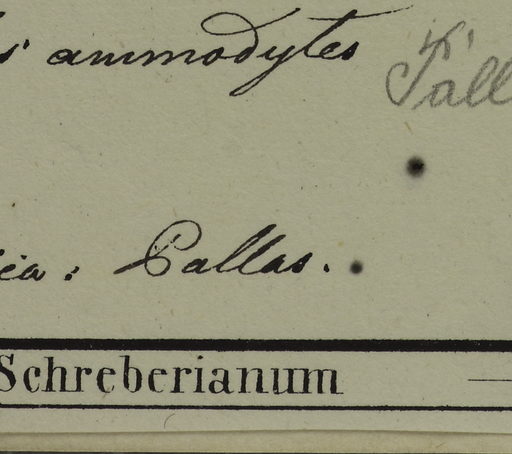 s ammodytes
Pall
ica : Pallas.
Schreberianum